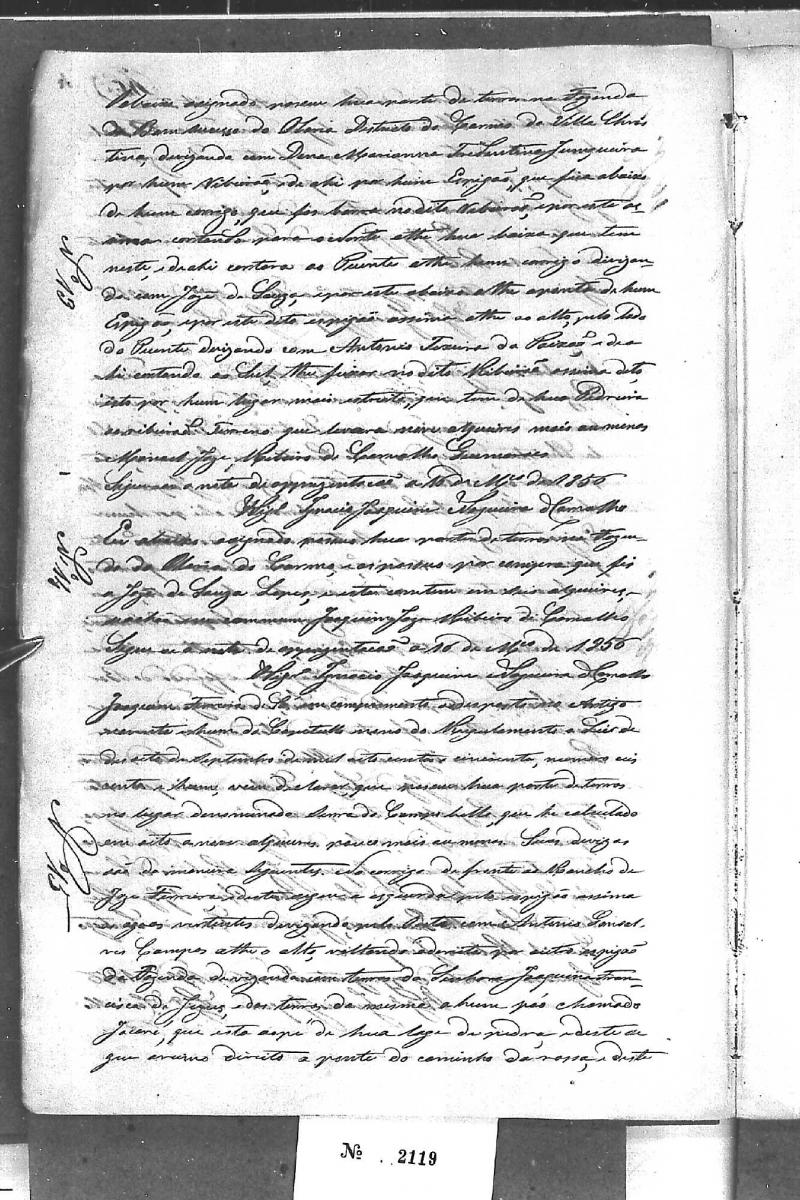 abaixo asignado possue hua parte de terra na Fazenda
do Bom Sucesso do Olaria Districto do Carmo da Villa Chris
tina, divizando com Dona Marianna Junqueira
por hum Ribeirão, e de ahi por hum Espigão, que fica abaixo
de hum corrigo, que fas barra no dito Ribeirão, e por este as
sima cortando para o Norte athe hua baixa que tem
neste, e de ahi cortara ao Puente athe hum corrigo divizan
do com Joze de Souza, e por este abaixo athe a ponta de hum
Espigão, e por este dito espigão assima athe ao alto, pelo lado
do Puente divizando com Antonio da e da
hi cortando ao Sul athe no dito Ribeirão assima dito
isto por hum lugar mais estreito, que tem de hua Pedreira
ao ribeirão Terreno que levara nove alqueires mais ou menos
Manoel Joze Ribeiro de Carvalho Guimaraes
Segue-se a nota de aprezentacão a 16 de Mço de 1856
Vigº Ignacio Joaquim Nogueira d Carvalho
Nº 13
Eu abaixo asignado possuo hua parte de terras na Fazen
da da Olaria do Carmo, e as possuo por compra que fis
a Joze de Souza Lopes, e estas constem em seis alqueires,
e achão em commum. Joaquim Joze Ribeiro de Carvalho
Segue-se a nota de aprezentacão a 16 de Mço de 1856
Vigº Ignacio Joaquim Nogueira d Carvalho
Nº 14
Joaquim Ferreira de Sá, em comprimento a disposto no Artigo
noventa e hum do Capitullo nono do Regulamento a Lei de
dezoito de Septembro de mil oito centos e cincoenta, numero seis
centos e hum, vem declarar, que possue hua parte de terras
no lugar denominado Serra do Campo bello, que he calculado
em oito a nove alqueires, pouco mais ou menos. Suas divizas
são da maneira seguintes: do corrigo de frente ao Rancho de
Joze Ferreira, e deste segue a esquerda pelo espigão assima
agoas vertentes divizando pelo com Antonio Gonsal
ves Campos athe o alto, voltando a direita por outro espigão
da Fazenda, divizando com terras da Senhora Joaquina Fran
cisca de Jezus, e das terras da mesma a hum páo chamado
Jacaré, que esta ao pé de hua lage de pedra, e deste se
gue o rumo direito a ponte do caminho da rossa, e deste
Nº 15
Nº 2119